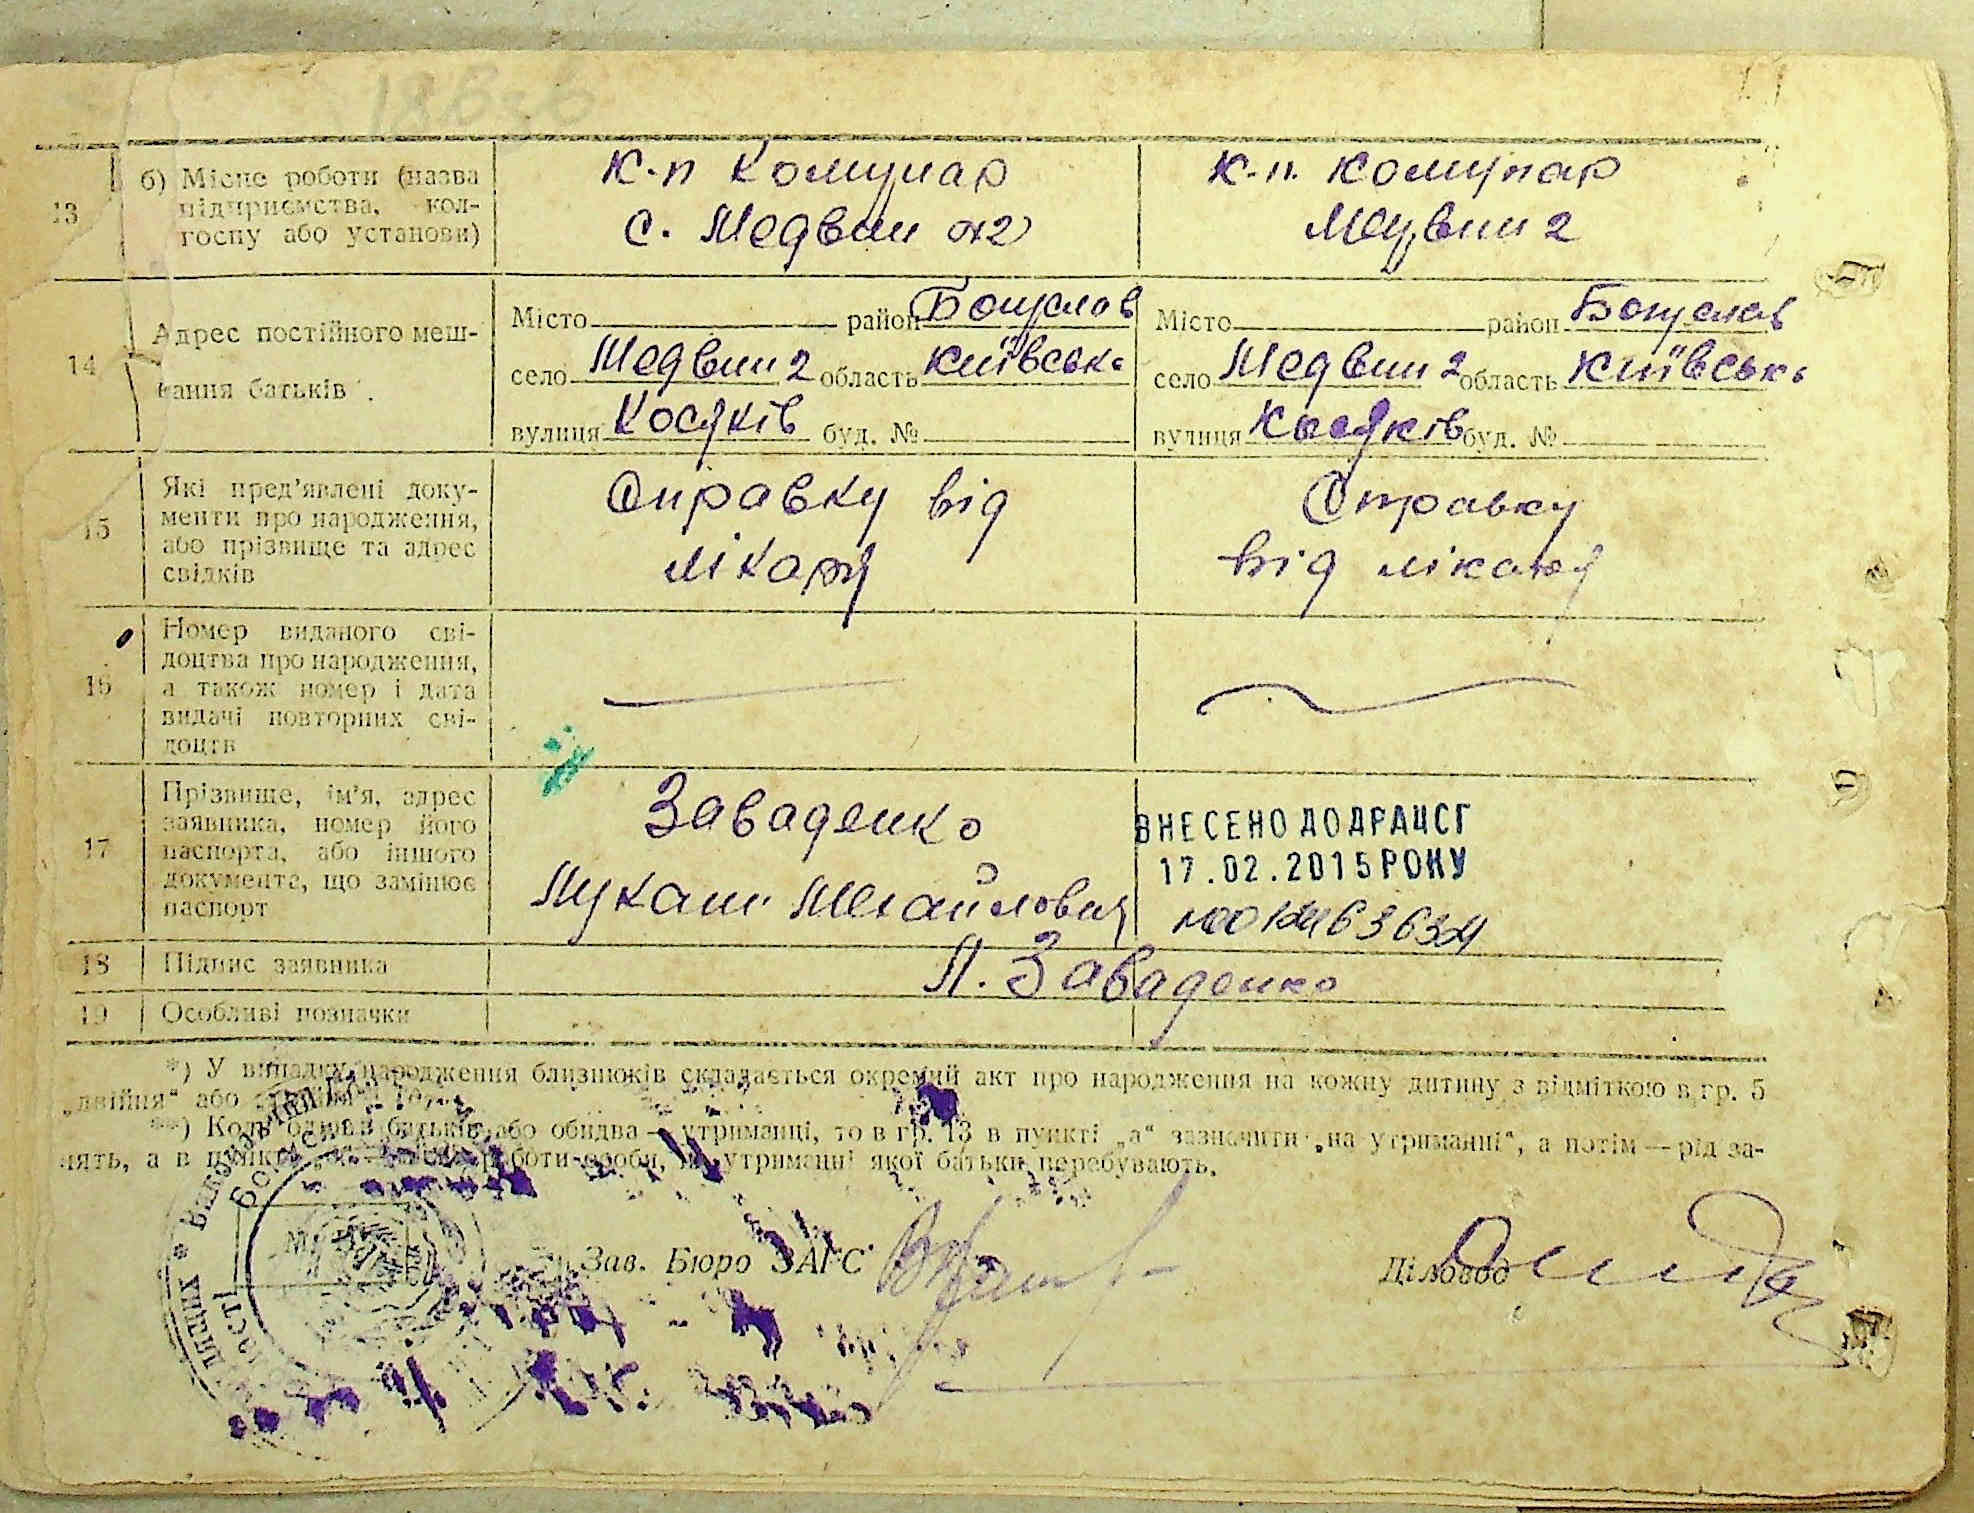 13
б) Місце роботи (назва
підприємства, кол-
госпу або установи)
к-п Комунар
с. Медвин №2
к.п. Комунар
Медвин 2
14
Адрес постійного меш-
кання батьків
Місто район Богуслав
село Медвин 2 область Київськ.
вулиця Косяків буд. №
Місто район Богуслав
село Медвин 2 область Київськ.
вулиця Косяків буд. №
15
Які пред'явлені доку-
менти про народження,
або прізвище та адрес
свідків
Справку від
лікаря
Справку
від лікаря
16
Номер виданого сві-
доцтва про народження,
а також номер і дата
видачі повторних сві-
доцтв
17
Прізвище, ім'я, адрес
заявника, номер його
паспорта, або іншого
документа, що замінює
паспорт
Заваденко
Лукаш Михайлович
ВНЕСЕНО ДО ДРАЦСГ
17.02.2015 РОКУ
18
Підпис заявника
Л. Заваденко
19
Особливі позначки
*) У випадку народження близнюків складається окремий акт про народження на кожну дитину з відміткою в гр. 5
„двійня“ або
**) Коли один з батьків або обидва — утриманці, то в гр. 13 в пункті „а“ зазначити „на утриманні“, а потім — рід за-
нять, а в пункті роботи особи, на утриманні якої батьки перебувають.
Зав. Бюро ЗАГС
Діловод